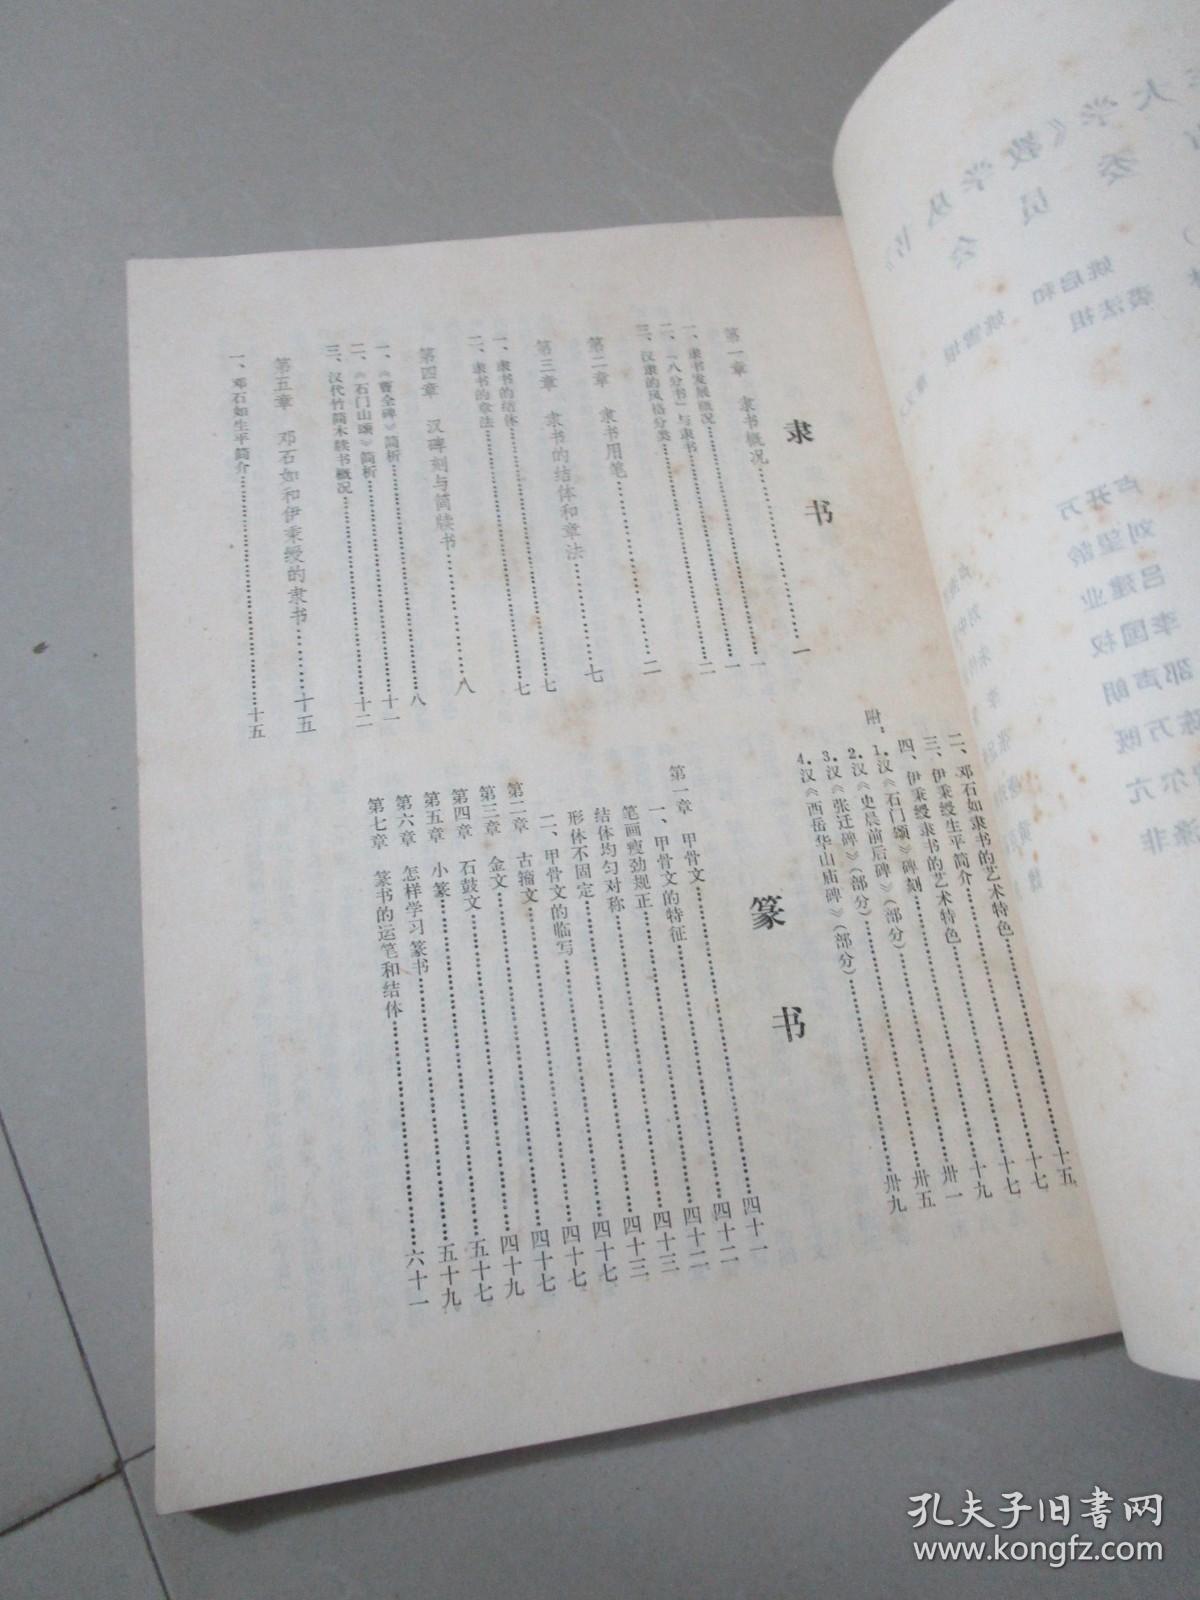 隶书
第一章 隶书概况……一
一、隶书发展概况……一
二、「八分书」与隶书……一
三、汉隶的风格分类……二
第二章 隶书用笔……二
第三章 隶书的结体和章法……七
一、隶书的结体……七
二、隶书的章法……七
第四章 汉碑刻与简牍书……八
一、《曹全碑》简析……八
二、《石门山颂》简析……十一
三、汉代竹简木牍书概况……十二
第五章 邓石如和伊秉绶的隶书……十五
一、邓石如生平简介……十五
二、邓石如隶书的艺术特色……十五
三、伊秉绶生平简介……十七
四、伊秉绶隶书的艺术特色……十七
附：1.汉《石门颂》碑刻……十九
2.汉《史晨前后碑》(部分)……卅一
3.汉《张迁碑》(部分)……卅五
4.汉《西岳华山庙碑》(部分)……卅九
篆书
第一章 甲骨文……四十一
一、甲骨文的特征……四十二
笔画瘦劲规正……四十二
结体均匀对称……四十三
形体不固定……四十三
二、甲骨文的临写……四十七
第二章 古籀文……四十七
第三章 金文……四十七
第四章 石鼓文……四十九
第五章 小篆……五十七
第六章 怎样学习篆书……五十九
第七章 篆书的运笔和结体……六十一
大学《教学丛书》
委员会
姚启和
裘法祖
卢开万
刘望龄
吕建业
李国权
邵声朗
陈万既
孔夫子旧书网
www.kongfz.com